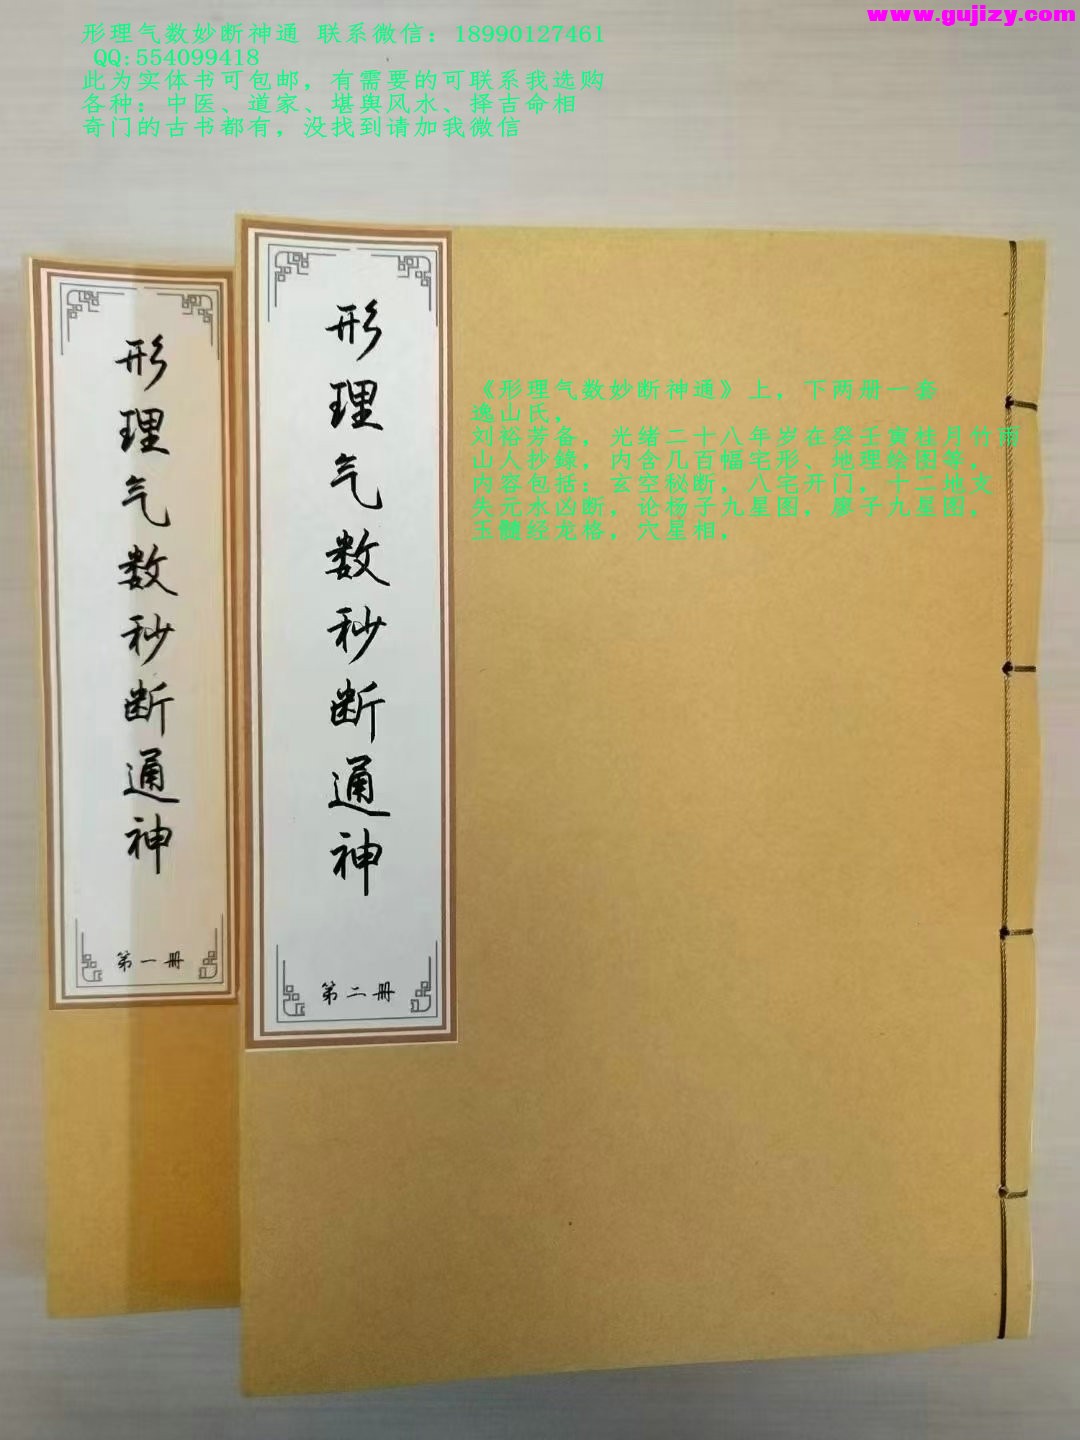 www.gujizy.com
形理气数妙断神通 联系微信：18990127461
QQ:554099418
此为实体书可包邮，有需要的可联系我选购
各种；中医、道家、堪舆风水、择吉命相
奇门的古书都有，没找到请加我微信
形理气数秒断通神
第一册
形理气数秒断通神
第二册
《形理气数妙断神通》上，下两册一套
逸山氏，
刘裕芳备，光绪二十八年岁在癸壬寅桂月竹雨
山人抄録，内含几百幅宅形、地理绘图等，
内容包括：玄空秘断，八宅开门，十二地支
失元水凶断，论杨子九星图，廖子九星图，
玉髓经龙格，穴星相，